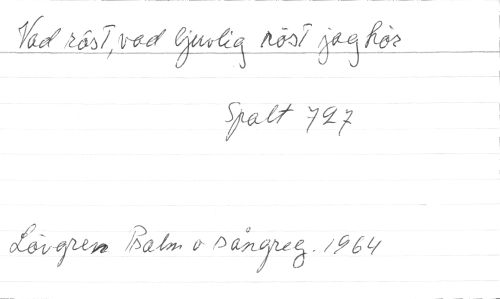 Vad röst, vad ljuvlig röst jag hör
Spalt 727
Lövgren Psalm o sångreg. 1964